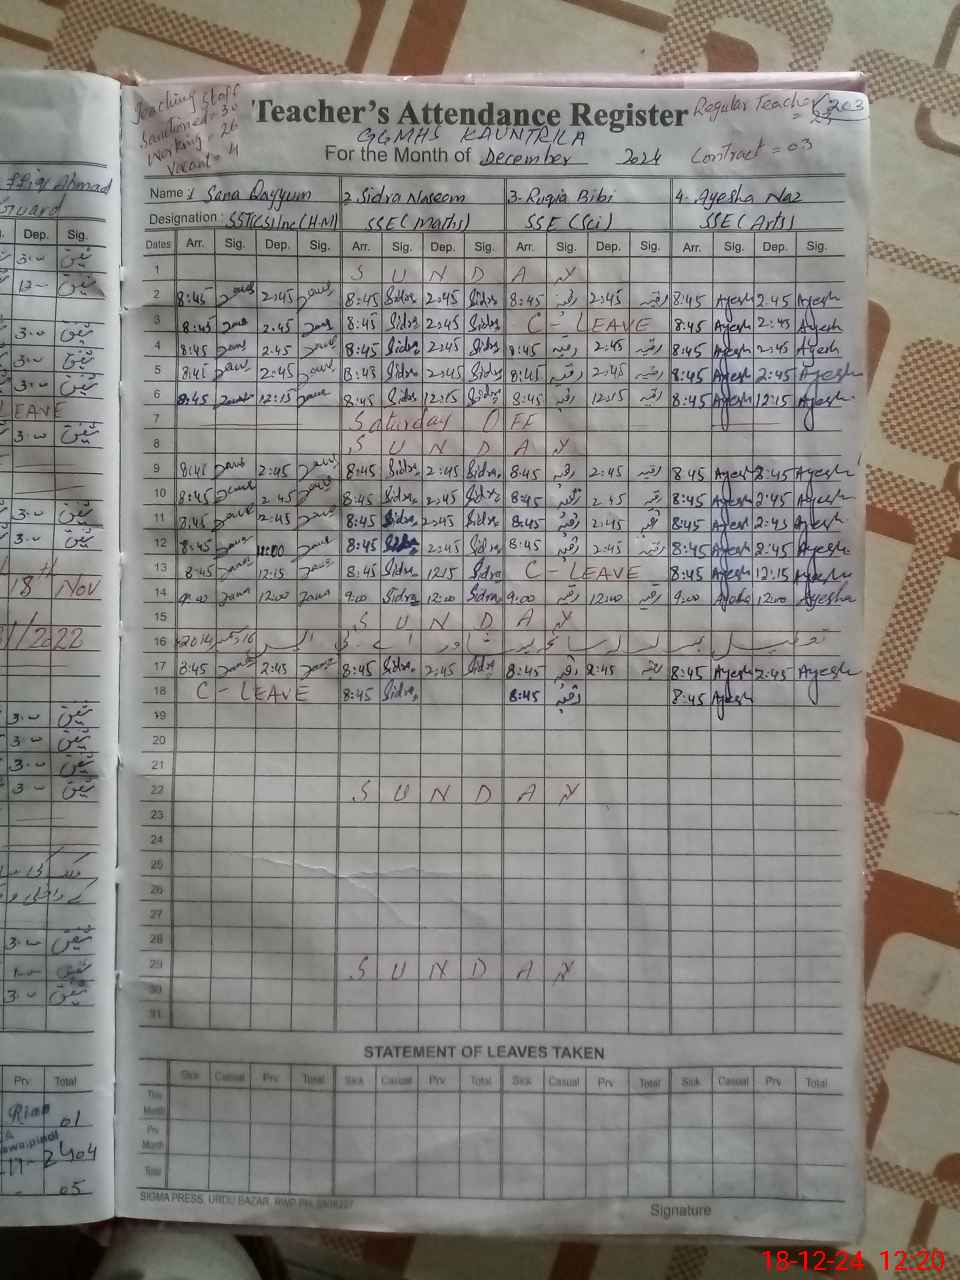 Teaching Staff
Sanctioned = 30
Working = 26
Vacant = 4
Teacher's Attendance Register
Regular Teacher = 23
203
GGMHS KAUNTRILA
For the Month of December 2024
Contract = 03
Name : 1 Sana Qayyum 2. Sidra Naseem 3. Ruqia Bibi 4. Ayesha Naz
Designation : SST(CS) Inc(H.M) SSE (Maths) SSE (Sci) SSE (Arts)
Dates Arr. Sig. Dep. Sig. Arr. Sig. Dep. Sig. Arr. Sig. Dep. Sig. Arr. Sig. Dep. Sig.
1 S U N D A Y
2 8:45 2:45 8:45 Sidra 2:45 Sidra 8:45 رقیہ 2:45 رقیہ 8:45 Ayesh 2:45 Ayesh
3 8:45 2:45 8:45 Sidra 2:45 Sidra C - LEAVE 8:45 Ayesh 2:45 Ayesh
4 8:45 2:45 8:45 Sidra 2:45 Sidra 8:45 رقیہ 2:45 رقیہ 8:45 Ayesh 2:45 Ayesh
5 8:45 2:45 8:45 Sidra 2:45 Sidra 8:45 رقیہ 2:45 رقیہ 8:45 Ayesh 2:45 Ayesha
6 8:45 12:15 8:45 Sidra 12:15 Sidra 8:45 رقیہ 12:15 رقیہ 8:45 Ayesh 12:15 Ayesha
7 Saturday OFF
8 S U N D A Y
9 8:45 2:45 8:45 Sidra 2:45 Sidra 8:45 رقیہ 2:45 رقیہ 8:45 Ayesh 2:45 Ayesha
10 8:45 2:45 8:45 Sidra 2:45 Sidra 8:45 رقیہ 2:45 رقیہ 8:45 Ayesh 2:45 Ayesha
11 8:45 2:45 8:45 Sidra 2:45 Sidra 8:45 رقیہ 2:45 رقیہ 8:45 Ayesh 2:45 Ayesha
12 8:45 11:00 8:45 Sidra 2:45 Sidra 8:45 رقیہ 2:45 رقیہ 8:45 Ayesh 2:45 Ayesha
13 8:45 12:15 8:45 Sidra 12:15 Sidra C - LEAVE 8:45 Ayesh 12:15 Ayesha
14 9:00 12:00 9:00 Sidra 12:00 Sidra 9:00 رقیہ 12:00 رقیہ 9:00 Ayesha 12:00 Ayesha
15 S U N D A Y
16 16 دسمبر 2014
17 8:45 2:45 8:45 Sidra 2:45 Sidra 8:45 رقیہ 2:45 رقیہ 8:45 Ayesh 2:45 Ayesha
18 C - LEAVE 8:45 Sidra 8:45 رقیہ 8:45 Ayesh
19
20
21
22 S U N D A Y
23
24
25
26
27
28
29 S U N D A Y
30
31
STATEMENT OF LEAVES TAKEN
Sick Casual Prv Total Sick Casual Prv Total Sick Casual Prv Total Sick Casual Prv Total
This Month
Prv Month
Total
SIGMA PRESS, URDU BAZAR, RWP PH:
Signature
Ahmad
Guard
Dep. Sig.
3:00 شفیق
12:00 شفیق
3:00 شفیق
3:00 شفیق
3:00 شفیق
LEAVE
3:00 شفیق
3:00 شفیق
3:00 شفیق
18th Nov
/2022
3:00 شفیق
3:00 شفیق
3:00 شفیق
3:00 شفیق
3:00 شفیق
1:00 شفیق
3:00 شفیق
Prv Total
01
04
05
18-12-24 12:20